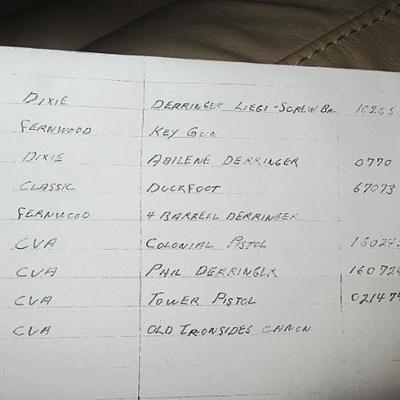 DIXIE DERRINGER LIEGI-SCREW BR. 10255
FERNWOOD KEY GUN
DIXIE ABILENE DERRINGER 0770
CLASSIC DUCKFOOT 67073
FERNWOOD 4 BARRELL DERRINGER
CVA COLONIAL PISTOL
CVA PHIL DERRINGER 160724
CVA TOWER PISTOL 021474
CVA OLD IRONSIDES CANON